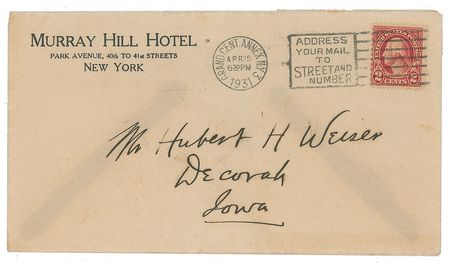 MURRAY HILL HOTEL
PARK AVENUE, 40TH TO 41ST STREETS
NEW YORK
GRAND CENT. ANNEX, N.Y. 3
APR 25
6-30PM
1931
ADDRESS
YOUR MAIL
TO
STREET AND
NUMBER
2 CENTS 2
Mr Hubert H Weiser
Decorah
Iowa